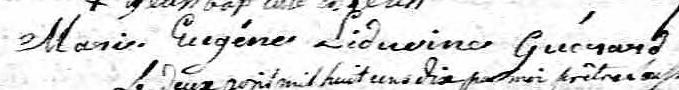 Marie Eugéne Liduvine Guérard
Le deux août mil huit cens dix par moi prêtre